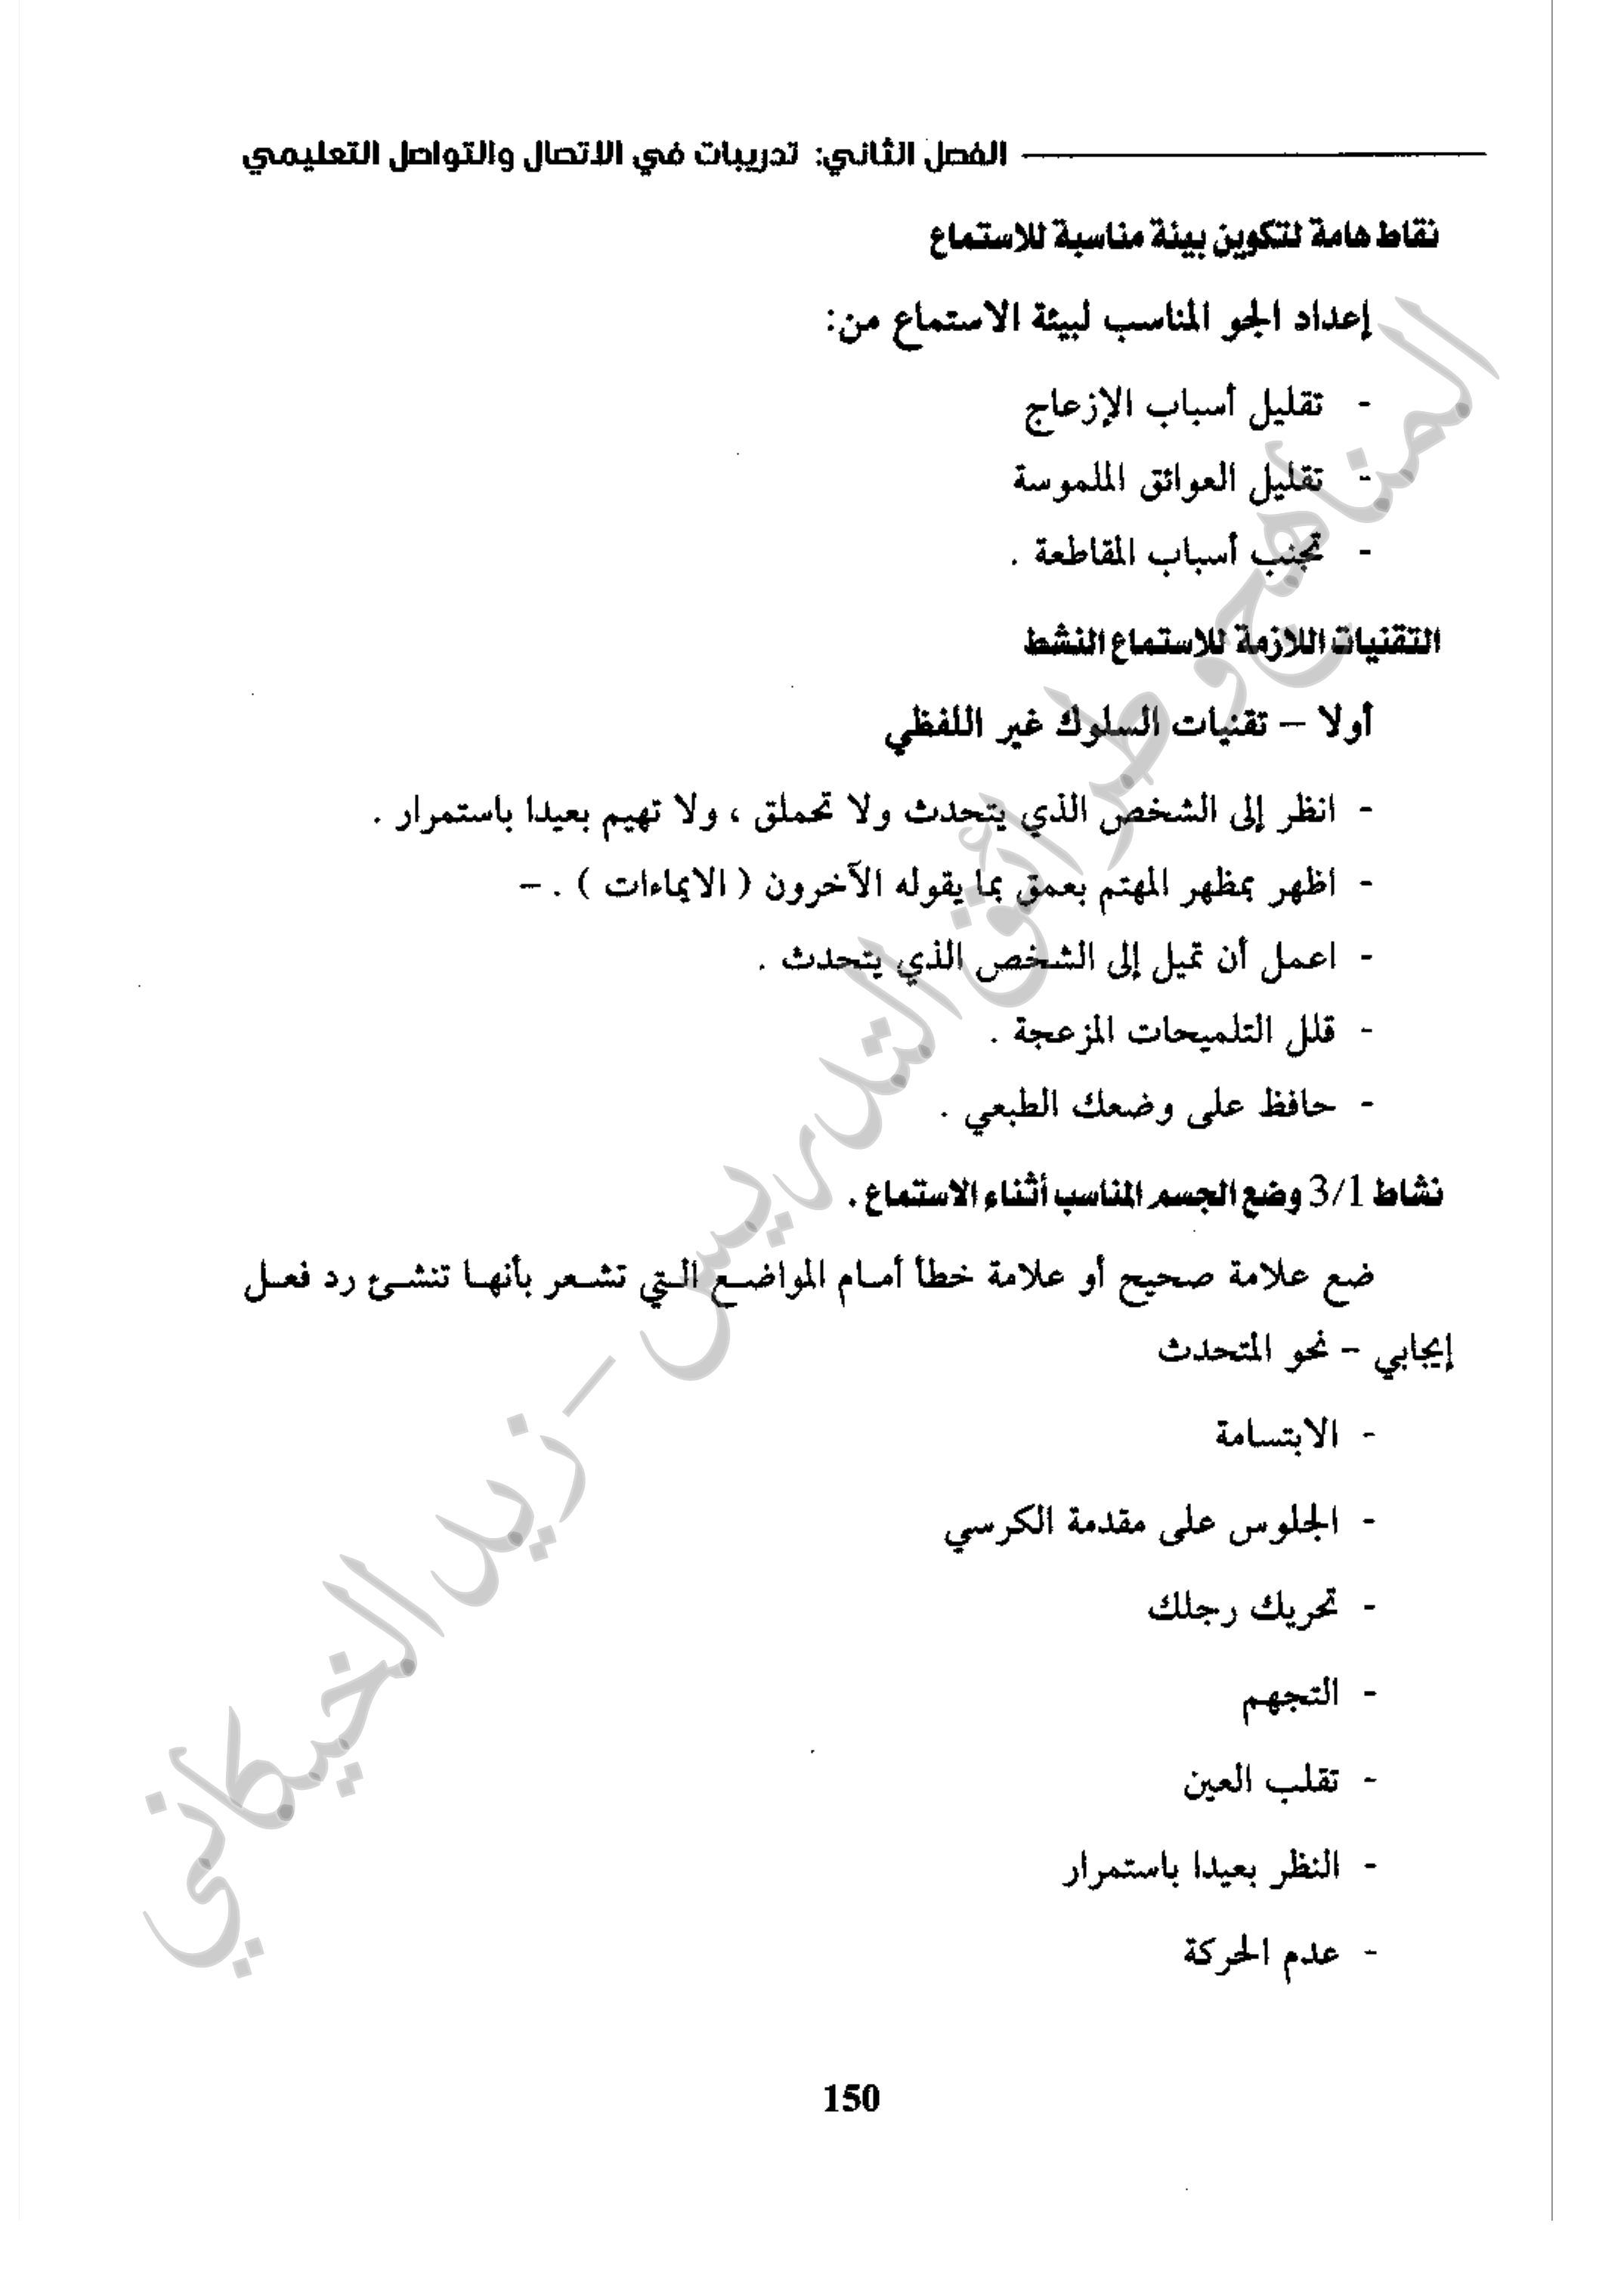 الفصل الثاني: تدريبات في الاتصال والتواصل التعليمي
نقاط هامة لتكوين بيئة مناسبة للاستماع
إعداد الجو المناسب لبيئة الاستماع من:
- تقليل أسباب الإزعاج
- تقليل العوائق الملموسة
- تجنب أسباب المقاطعة .
التقنيات اللازمة للاستماع النشط
أولا – تقنيات السلوك غير اللفظي
- انظر إلى الشخص الذي يتحدث ولا تحملق ، ولا تهيم بعيدا باستمرار .
- اظهر بمظهر المهتم بعمق بما يقوله الآخرون ( الايماءات ) . –
- اعمل أن تميل إلى الشخص الذي يتحدث .
- قلل التلميحات المزعجة .
- حافظ على وضعك الطبعي .
نشاط 3/1 وضع الجسم المناسب أثناء الاستماع .
ضع علامة صحيح أو علامة خطأ أمام المواضع التي تشعر بأنها تنشئ رد فعل
إيجابي – نحو المتحدث
- الابتسامة
- الجلوس على مقدمة الكرسي
- تحريك رجلك
- التجهم
- تقلب العين
- النظر بعيدا باستمرار
- عدم الحركة
150
المناهج وطرائق التدريس – زيد الخيكاني